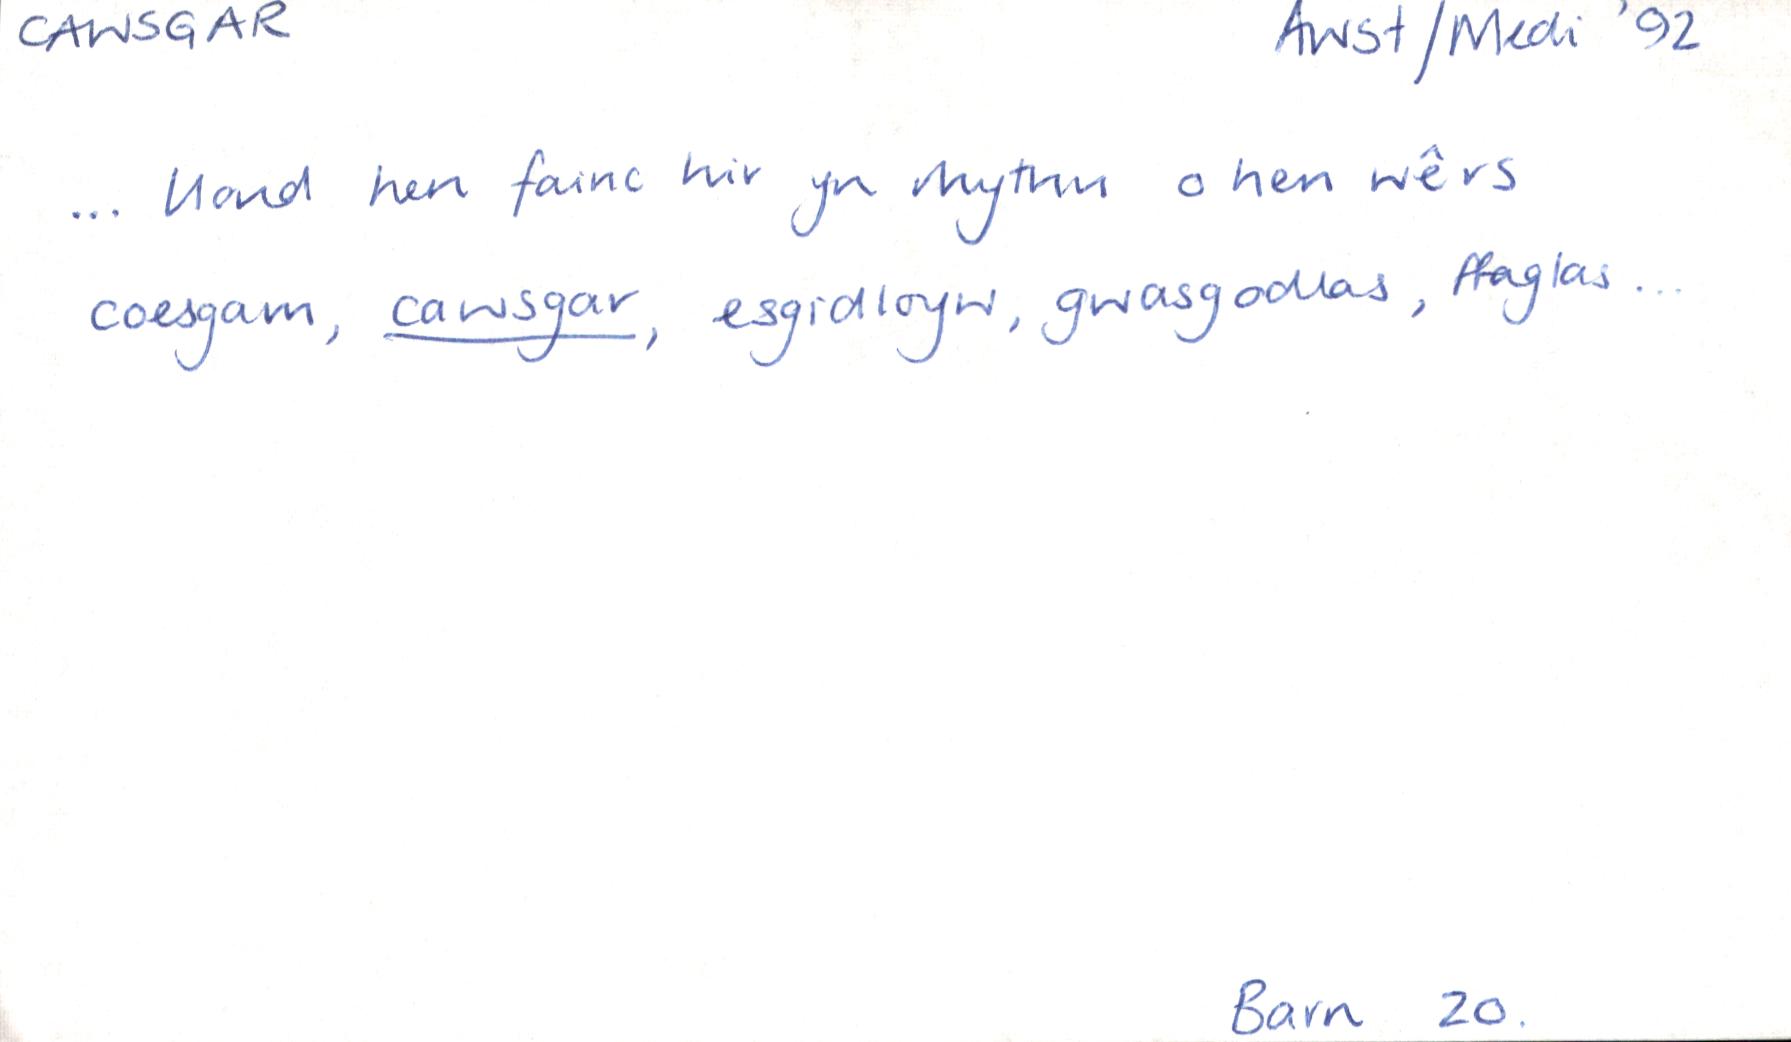 CAWSGAR
Awst/Medi '92
... llond hen fainc hir yn rhythm o hen wêrs
coesgam, cawsgar, esgidloyw, gwasgodlas, ffaglas ...
Barn 20.